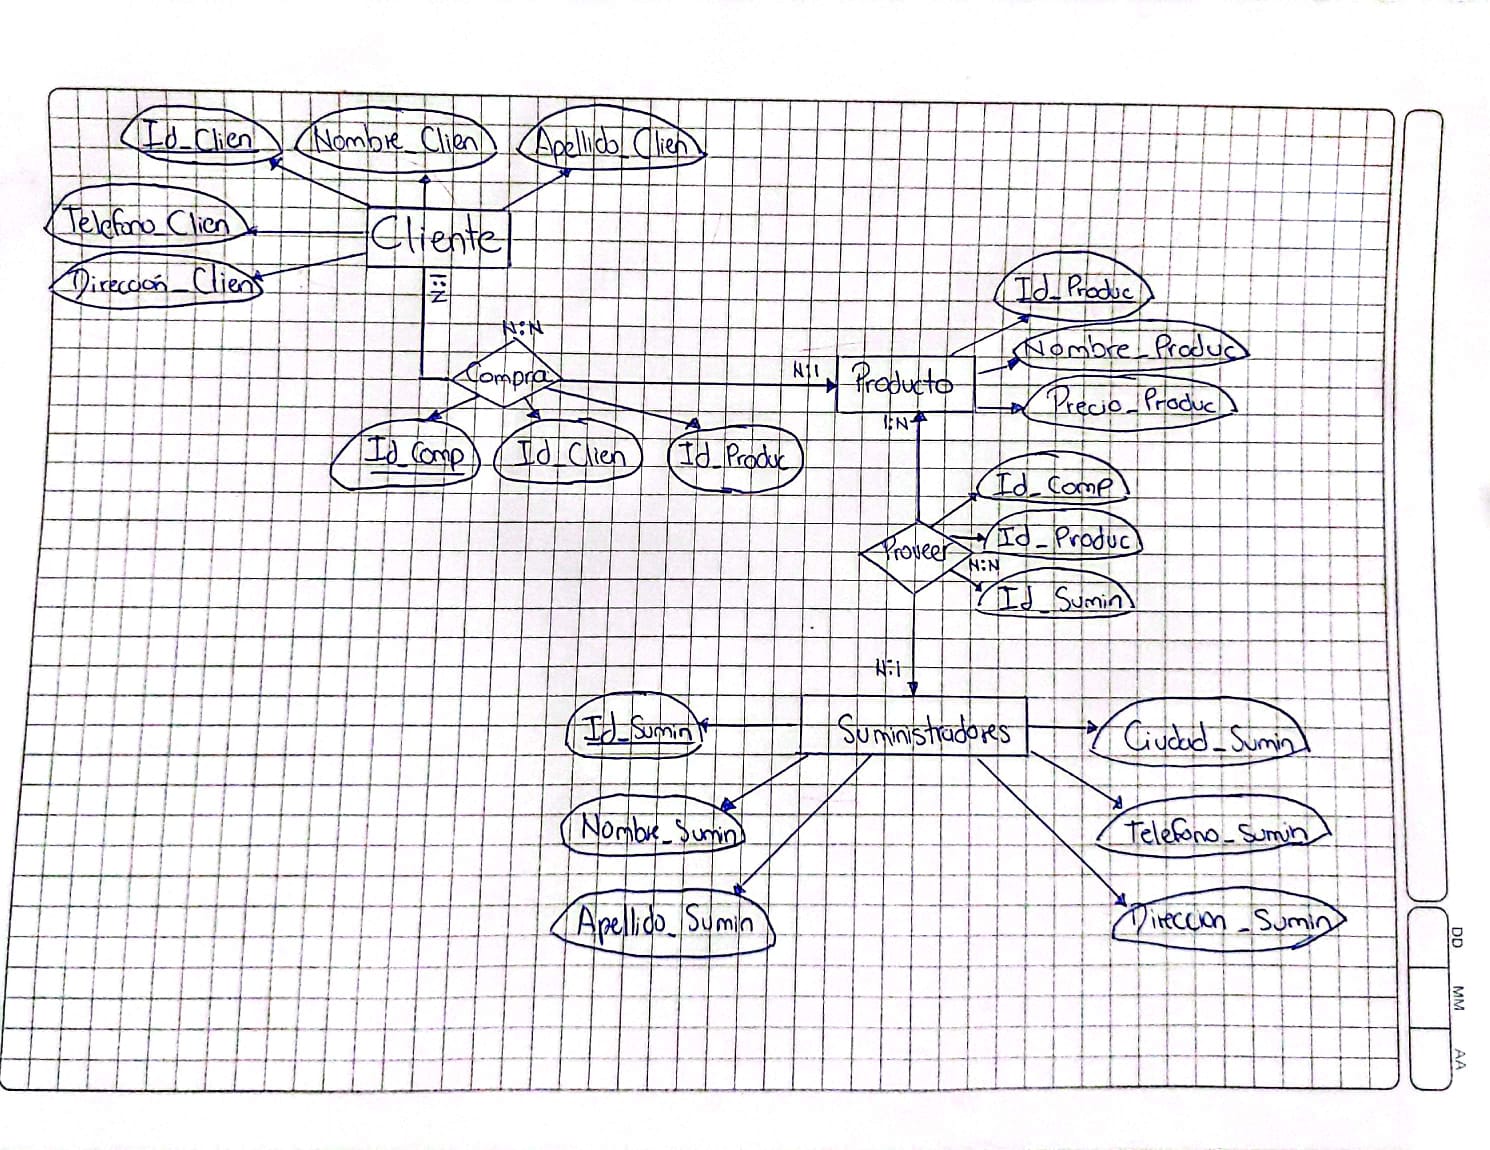 Id_Clien
Nombre_Clien
Apellido_Clien
Telefono_Clien
Cliente
Dirección_Clien
1:N
N:N
Compra
N:1
Producto
Id_Produc
Nombre_Produc
Precio_Produc
1:N
Id_Comp
Id_Clien
Id_Produc
Id_Comp
Proveer
Id_Produc
N:N
Id_Sumin
N:1
Id_Sumin
Suministradores
Ciudad_Sumin
Nombre_Sumin
Telefono_Sumin
Apellido_Sumin
Direccion_Sumin
DD
MM
AA